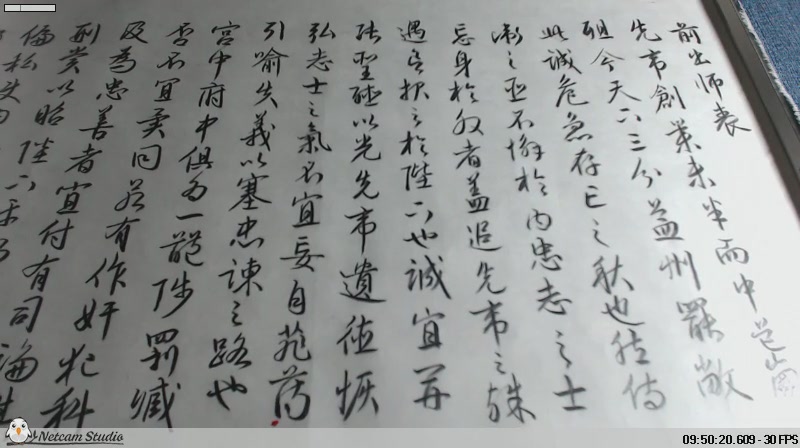 前出師表
先帝創業未半而中道崩
殂今天下三分益州罷敝
此誠危急存亡之秋也然侍
衛之臣不懈於內忠志之士
忘身於外者蓋追先帝之殊
遇欲報之於陛下也誠宜開
張聖聽以光先帝遺德恢
弘志士之氣不宜妄自菲薄
引喻失義以塞忠諫之路也
宮中府中俱為一體陟罰臧
否不宜異同若有作奸犯科
及為忠善者宜付有司論其
刑賞以昭陛下平
偏私使內
Netcam Studio
09:50:20.609 - 30 FPS